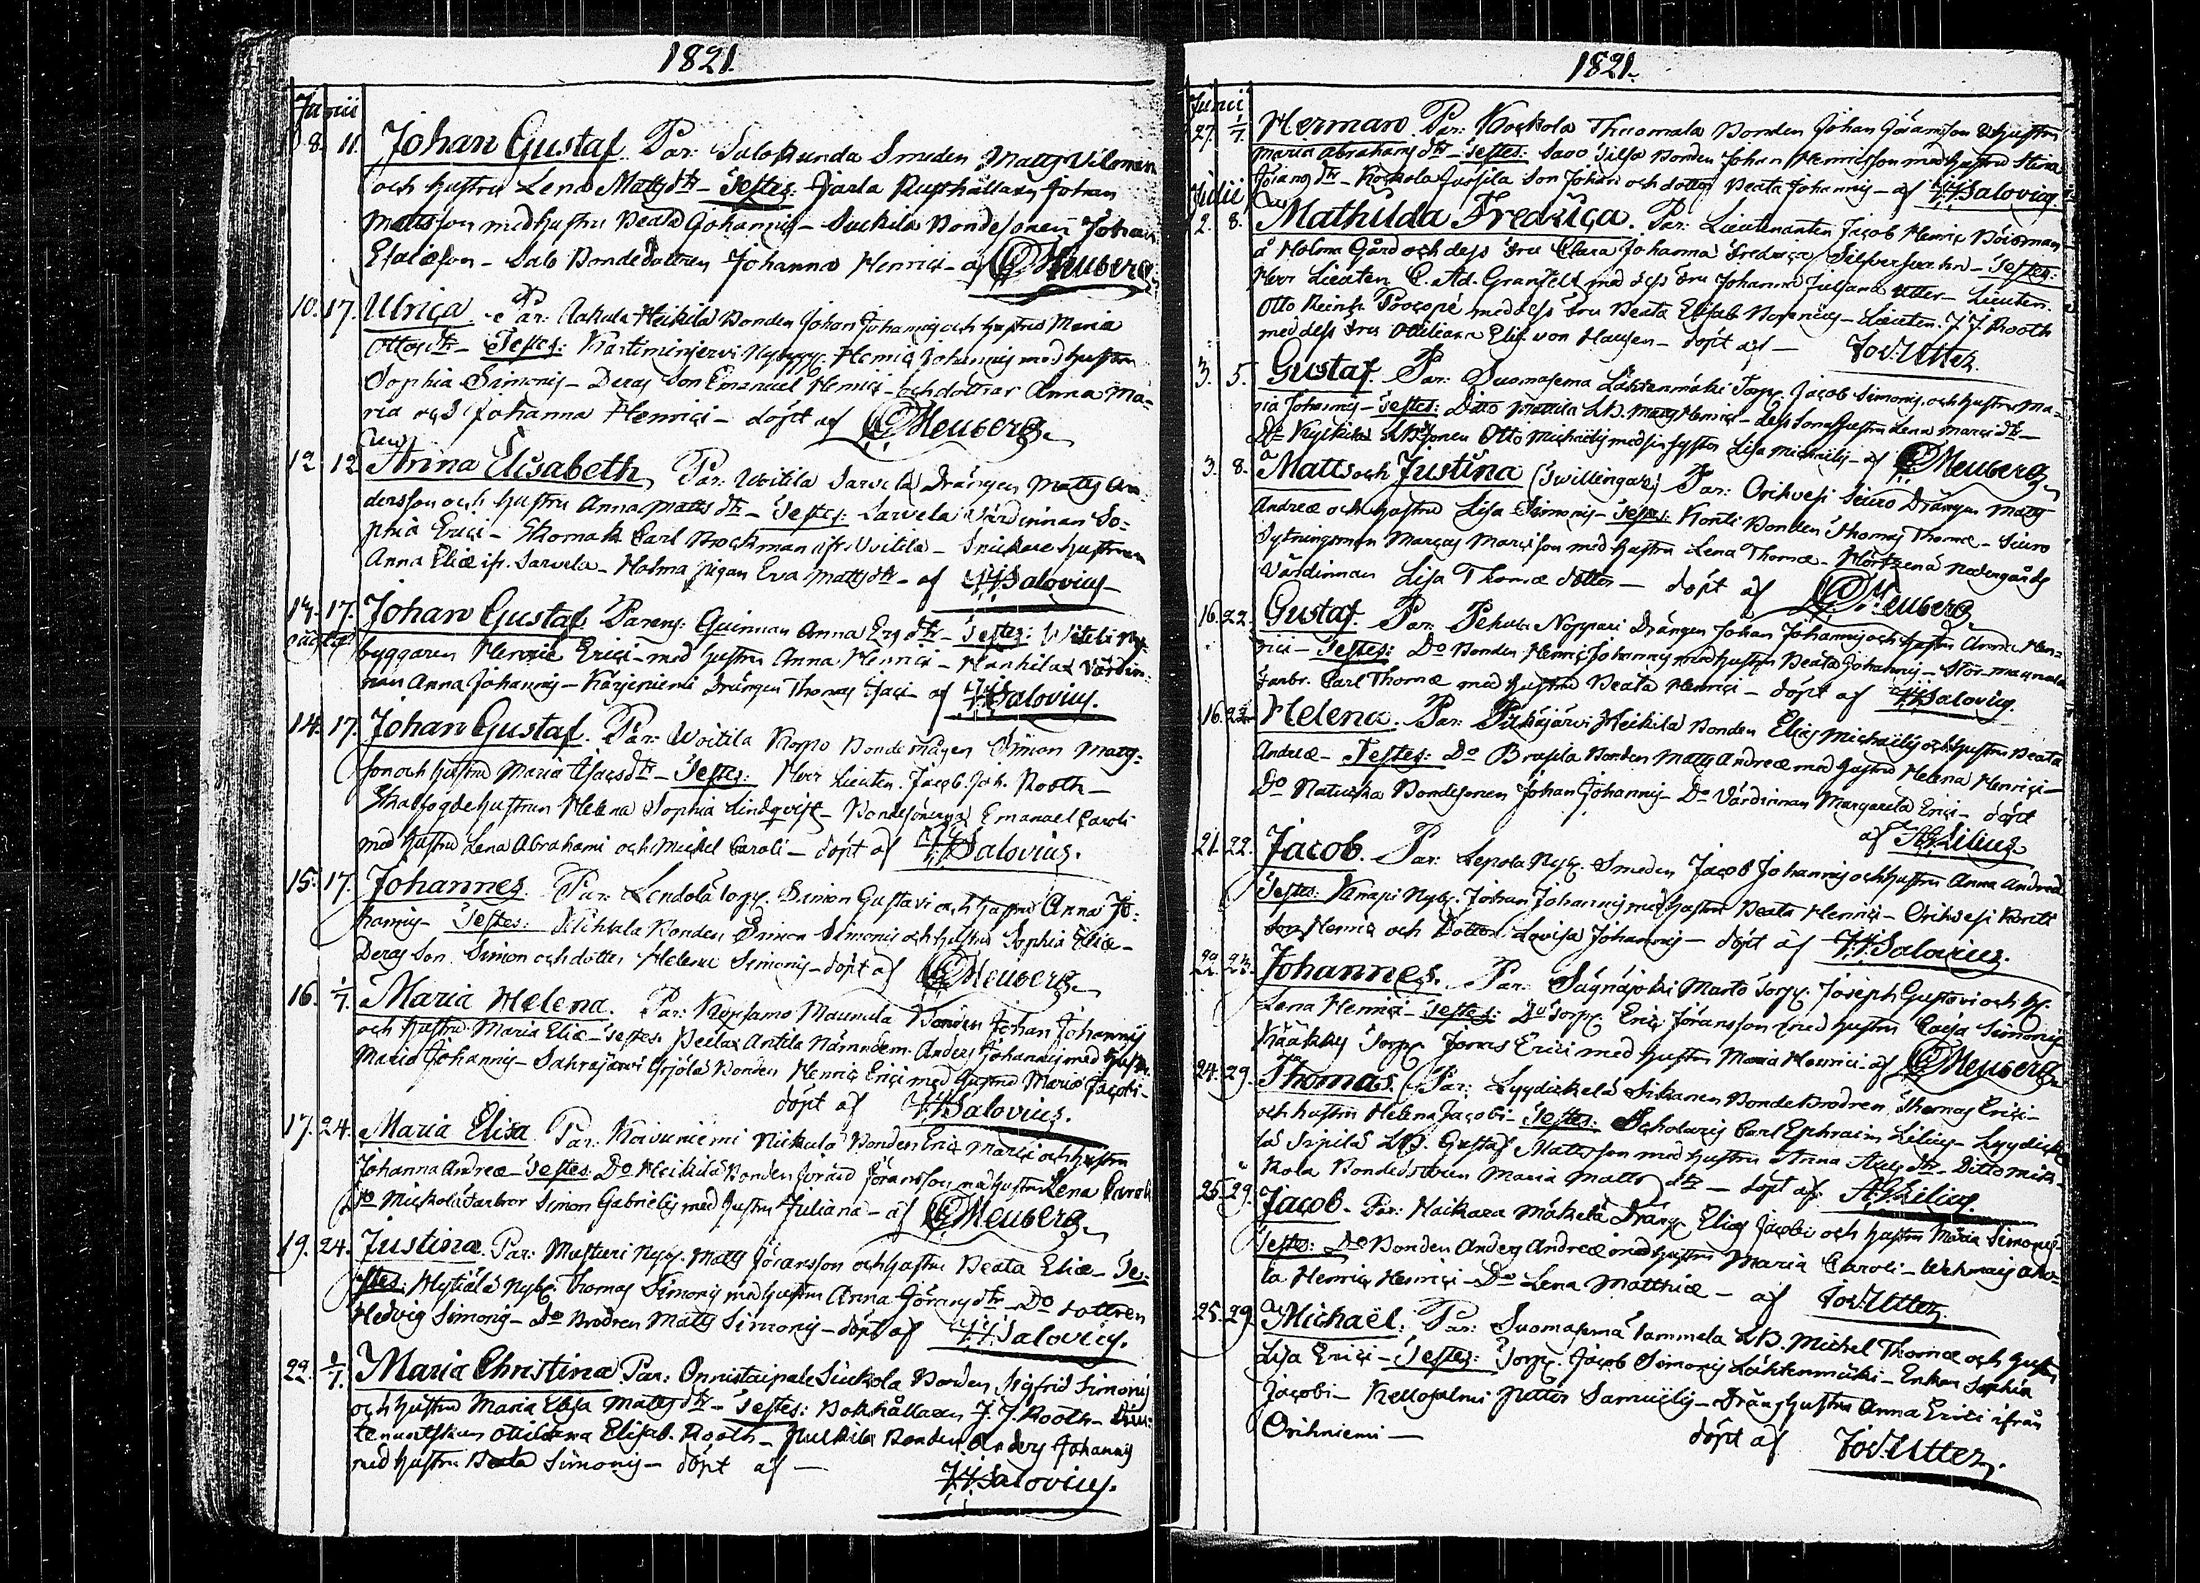 1821.
Junii
8. 11. Johan Gustaf. Par: Salokunda Smeden Matts Viloman
och hustru Lena Matts dtr – Testes: Jarla Rusthållaren Johan
Mattsson med hustru Beata Johannis – Suckila Bondesonen Johan
Esaiæson – Salo Bondedottren Johanna Henrici – af Meuberg
10. 17. Ulrica. Par: Heikilä Bonden Johan Johannis och hustru Maria
Ottos dtr – Testes: Nybygg. Henric Johannis med hustru
Sophia Simonis – Deras Son Emanuel Henrici – och döttrar Anna Ma=
ria och Johanna Henrici – döpt af Meuberg
12. 12 Anna Elisabeth, Par: Woitila Sarvela Drängen Matts An=
dersson och hustru Anna Matts dtr – Testes: Sarvela Värdinnan So=
phia Erici – Carl Brockman ifr. Woitila – Snickare hustrun
Anna Eliæ ifr. Sarvela – Holma pigan Eva Matts dtr – af Salovius
17. Johan Gustaf. Parens: Quinnan Anna Ers dtr – Testes: Ny=
byggaren Henric Erici – med hustru Anna Henrici – Värdin=
nan Anna Johannis – Karjeniemi Drängen Thomas – af Salovius.
14. 17. Johan Gustaf. Par: Woitila Korpo Bondemågen Simon Matts=
son och hustru Maria Isacs dtr – Testes: Herr Lieuten. Jacob Joh. Rooth –
hustrun Helena Sophia Lindqvist – Bondesönerna Emanuel Caroli
med hustru Lena Abrahami och Michel Caroli – döpt af Salovius.
15. 17. Johannes. Par: Lendola Torp. Simon Gustavi och hustru Anna Jo=
hannis – Testes: Bonden Simon Simonis och hustru Sophia Eliæ –
Deras Son Simon och dotter Helena Simonis – döpt af Meuberg
16. 1/7. Maria Helena. Par: Maunula Bonden Johan Johannis
och hustru Maria Eliæ – Testes: Antila Nämndem. Anders Johannis med hustru
Maria Johannis – Sahrajärvi Yrjölä Bonden Henric Erici med hustru Maria Jacobi –
döpt af Salovius.
17. 24. Maria Elisa. Par: Koivuniemi Nickula Bonden Eric Marci och hustru
Johanna Andreæ – Testes: Do Heikilä Bonden Jöransson med hustru Lena Caroli
Do Simon Gabrielis med hustru Juliana – af Meuberg
19. 24. Justina. Par: Nyb. Matts Jöransson och hustru Beata Eliæ – Te=
stes: Nyb. Thomas Simonis med hustru Anna Görans dtr – Do dottren
Hedvig Simonis – Do Brodren Matts Simonis – döpt af Salovius.
22. 1/7. Maria Christina Par: Onnistaipale Suckola Bonden Sigfrid Simonis
och hustru Maria Elisa Matts dtr – Testes: Bokhållaren J. J. Rooth – Lieu=
tenantskan Ottiliana Elisab. Rooth – Bonden Anders Johannis
med hustru Beata Simonis – döpt af – Salovius.
1821.
Junii
27. 1/7. Herman Par: Kockola Thuomala Bonden Johan Göransson & hustru
Maria Abrahams dtr – Testes: Savo Bonden Johan Henricsson med hustru Stina
Görans dtr – Kockola Jussila Son Johan och dotter Beata Johannis – af Salovius
Julii
2. 8. Mathilda Fredrica. Par: Lieutenanten Jacob Henric Böisman
å Holma Gård och dess Fru Clara Johanna Fredrica Silfversvahn – Testes:
Herr Lieuten. C. Ad. Granfelt med dess Fru Johanna Juliana Utter – Lieuten.
Otto Reinh. Procopé med dess Fru Beata Elisab. – Lieuten. J J Rooth
med dess Fru Ottiliana Elis. von Hausen – döpt af – Jos. Utter
3. 5. Gustaf. Par: Suomasema Lähtenmäki Torp. Jacob Simonis och hustru Ma=
ria Johannis – Testes: Ditto Mattila LB. Matts Henrici – dess Sonahustru Lena Marci dtr –
Otto Michaëlis med sin syster Lisa Michaëlis – af Meuberg
3. 8. Matts och Justina (Twillingar) Par: Orihvesi Siuro Drängen Matts
Andreæ och hustru Lisa Simonis – Testes: Konti Bonden Thomas Thomæ – Siuro
Sytningsman Marcus Marcisson med hustru Lena Thomæ –
Värdinnan Lisa Thomæ dotter – döpt af Meuberg
16. 22. Gustaf. Par: Pekula Noppari Drängen Johan Johannis och hustru Anna Hen=
rici – Testes: Do Bonden Henric Johannis med hustru Beata Johannis –
Farbr. Carl Thomæ med hustru Beata Henrici – döpt af Salovius.
16. 22. Helena. Par: Pitkäjärvi Heikilä Bonden Elias Michaëlis och hustru Beata
Andreæ – Testes: Do Brusila Bonden Matts Andreæ med hustru Helena Henrici –
Do Bondesonen Johan Johannis – Do Värdinnan Margareta Erici – döpt
af Lilius
21. 22. Jacob. Par: Lepola Nyb. Smeden Jacob Johannis och hustru Anna Andreæ
Testes: Nyb. Johan Johannis med hustru Beata Henrici – Orihvesi
Son Henric och Dotter Lovisa Johannis – döpt af Salovius.
22. Johannes. Par: Torp. Joseph Gustavi och h.
Lena Henrici – Testes: Do Torp. Eric Jöransson med hustru Caisa Simonis
Torp. Jonas Erici med hustru Maria Henrici – af Meuberg
24. 29. Thomas. Par: Lyydickelä Sikanen Bondebrodren Thomas Erici –
och hustru Helena Jacobi – Testes: Scholaris Carl Ephraim Lilius – Lyydicke
lä Sipilä LB. Gustaf Mattsson med hustru Anna dtr – Ditto Mik=
kola Maria Matts dtr – döpt af Lilius
25. 29. Jacob. Par: Haikara Mäkelä Dräng. Elias Jacobi och hustru Maria Simonis
Testes: Do Bonden Anders Andreæ med hustru Maria Caroli –
la Henric Henrici – Do Lena Matthiæ – af Jos. Utter
25. 29. Michaël. Par: Suomasema Tammela LB. Michel Thomæ och hustru
Lisa Erici – Testes: Torp. Jacob Simonis Lähtenmäki – Enkan Sophia
Jacobi – Petter Samuelis – Dränghustru Anna Erici ifrån
Orihniemi – döpt af Jos. Utter